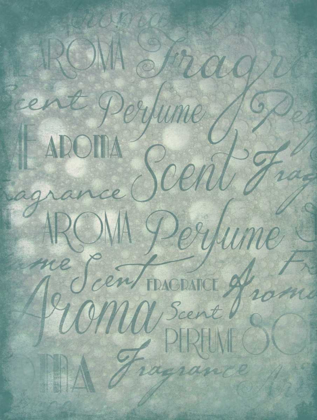 aroma
AROMA Fragr
Scent Perfume Pe
ME AROMA Scent Frag
ragrance
AROMA Perfume
me Scent FRAGRANCE Fr
Aroma Scent Aroma
PERFUME SC
MA Fragrance